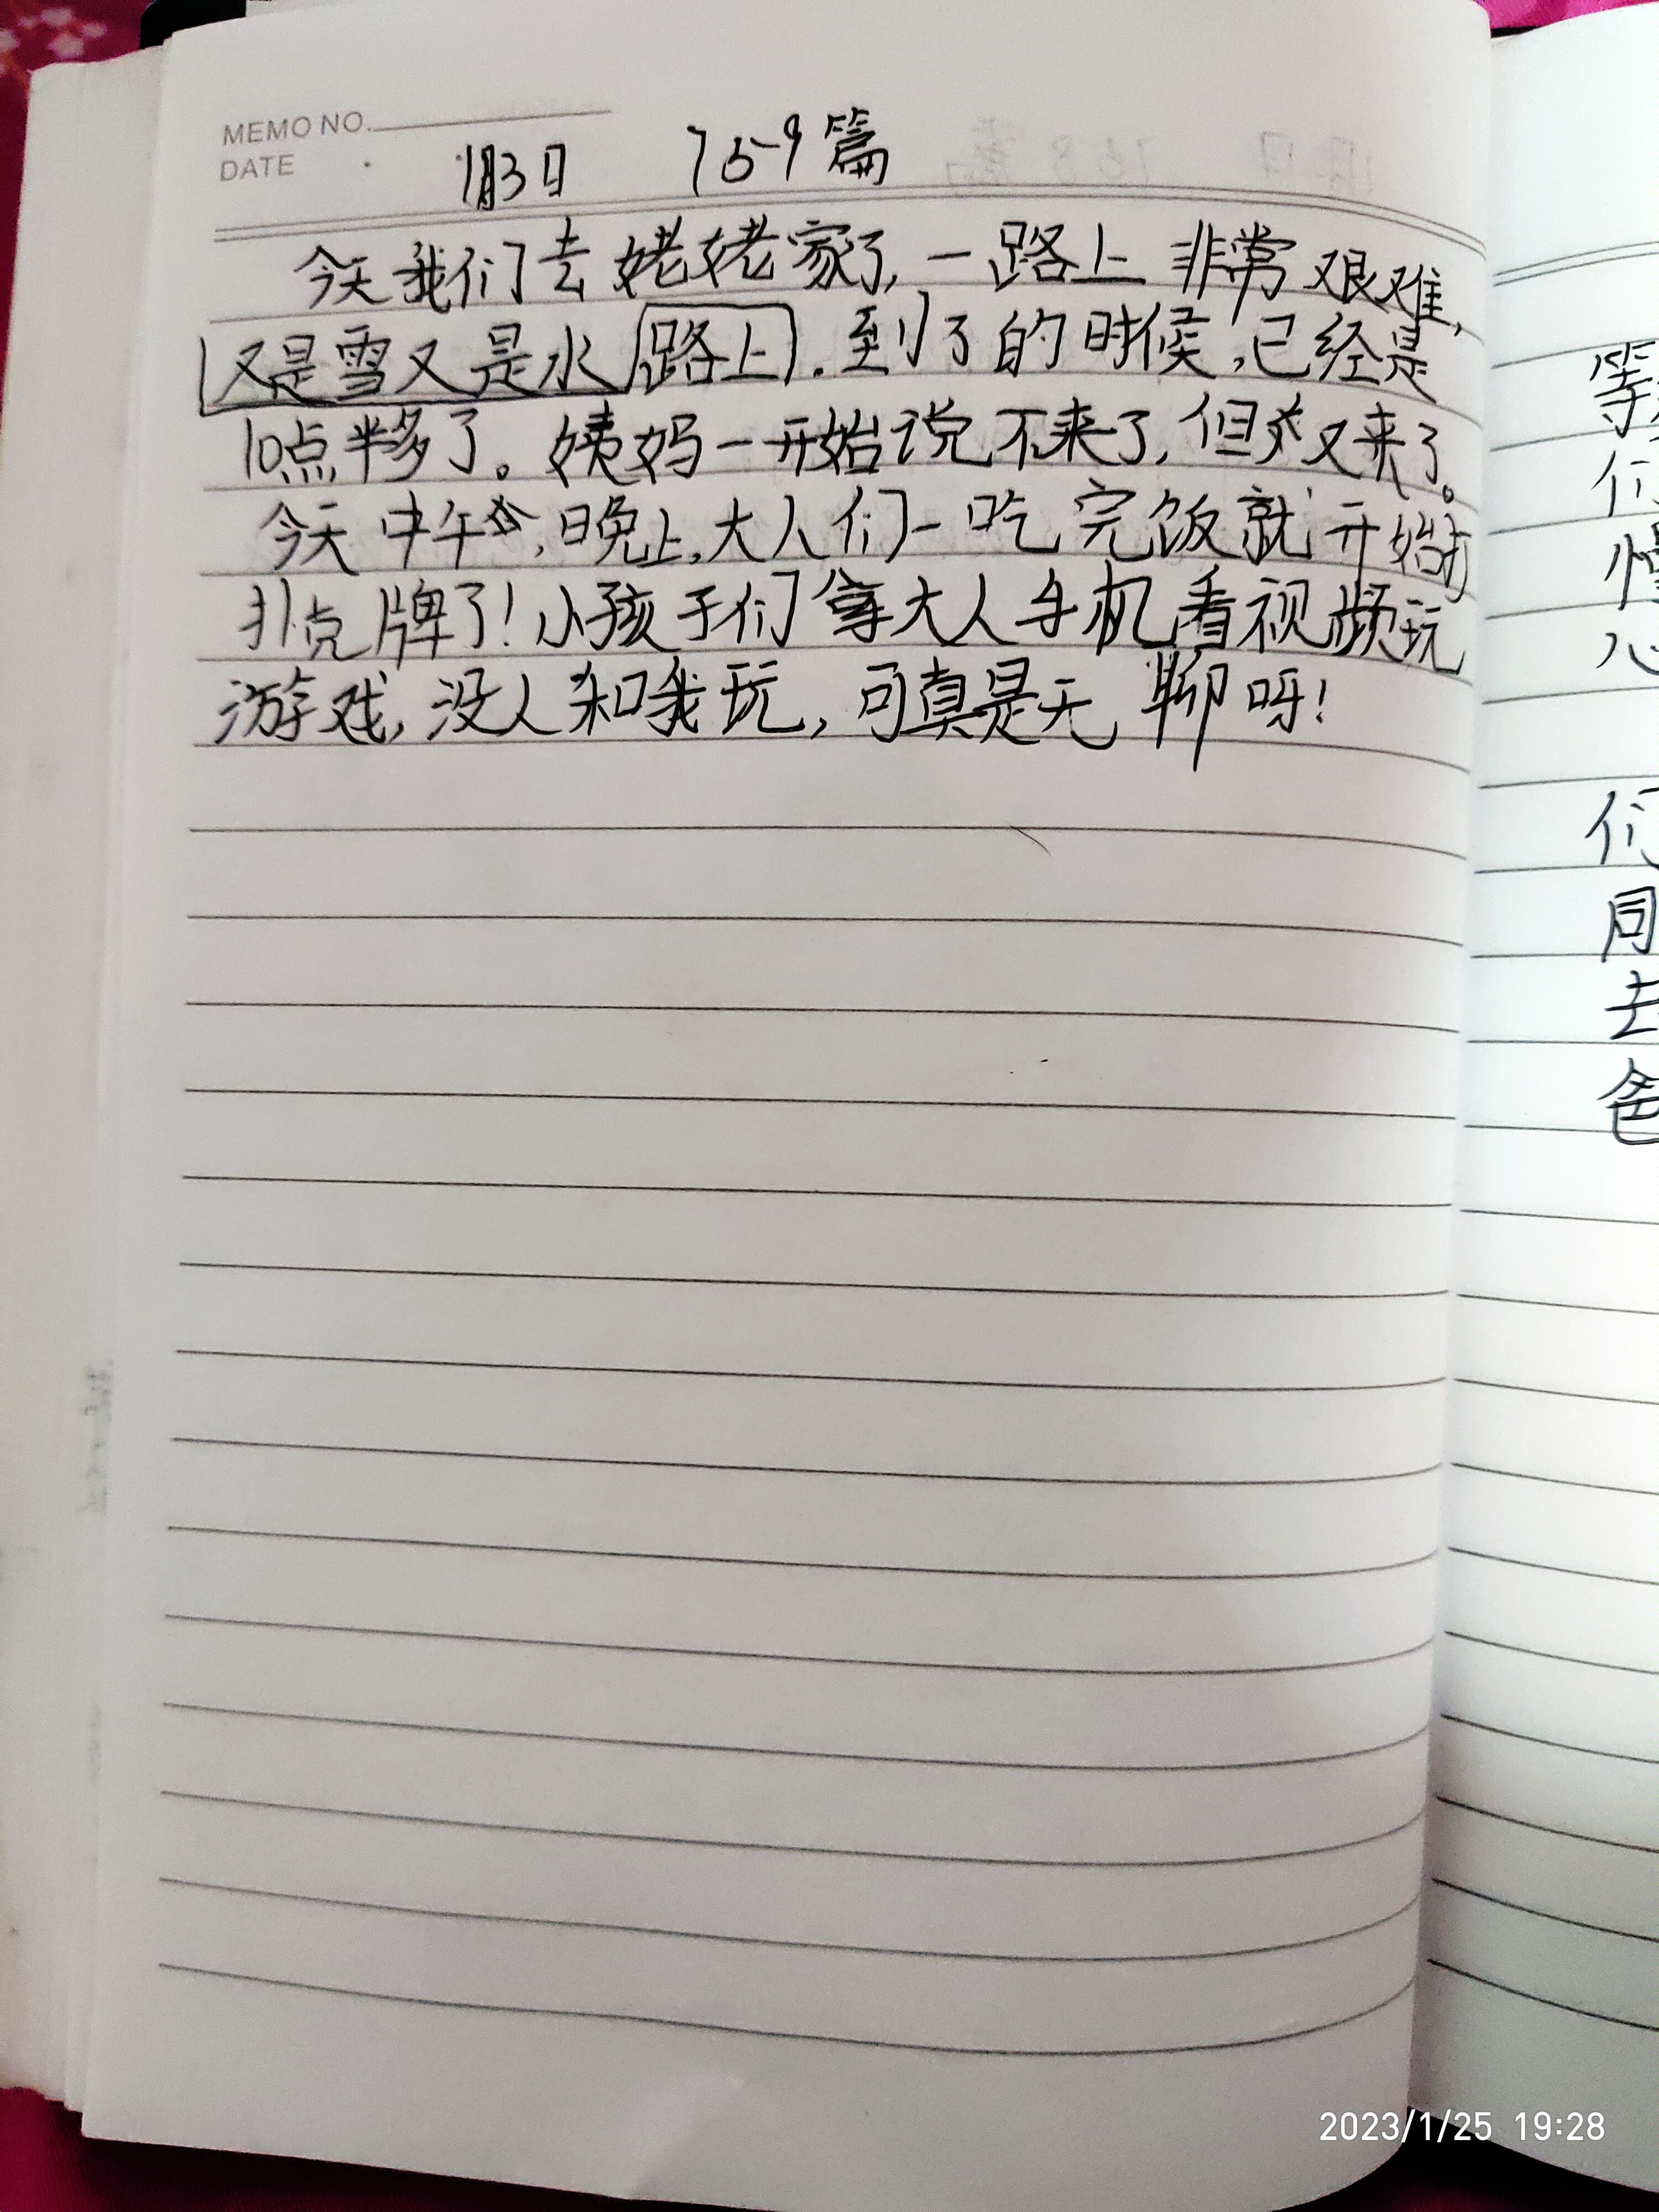 MEMO NO.
DATE
1月3日 769篇
今天我们去姥姥家了,一路上非常艰难,
又是雪又是水路上.到了的时候,已经是
10点半多了。姨妈一开始说不来了,但又来了。
今天中午,晚上,大人们一吃完饭就开始打
扑克牌了!小孩子们拿大人手机看视频玩
游戏,没人和我玩,可真是无聊呀!
等
们
慢
心
们
同
去
爸
2023/1/25 19:28